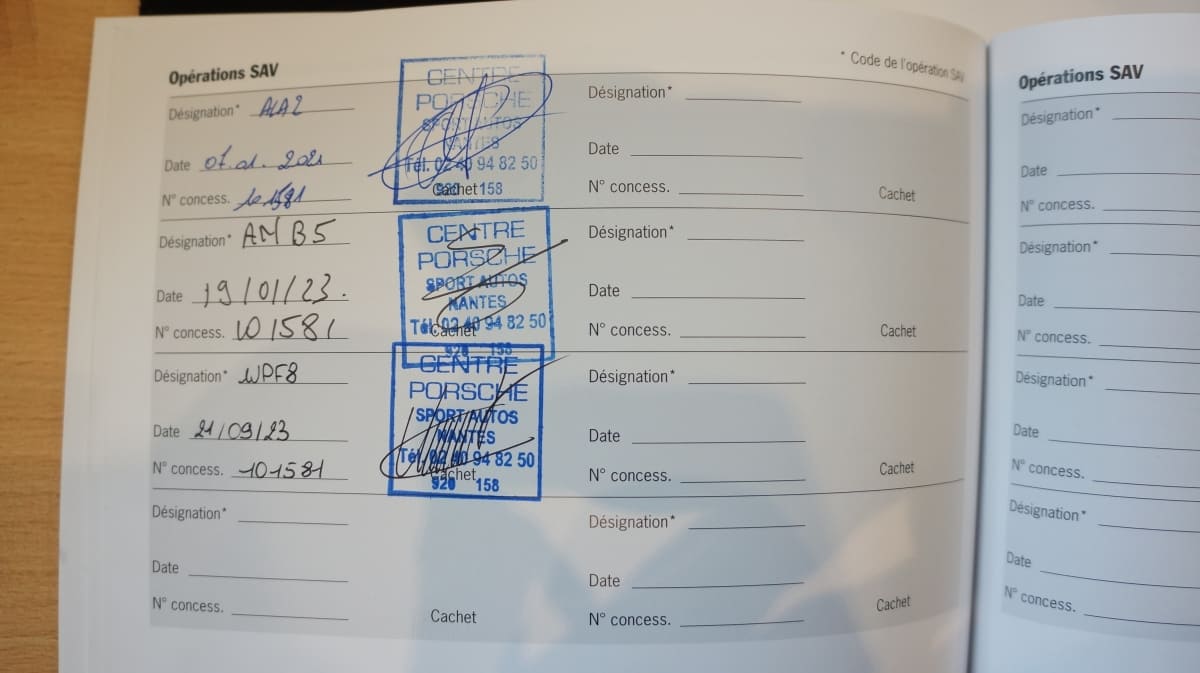 Opérations SAV
* Code de l'opération SAV
Désignation* ALA2
Date 07.01.2021
N° concess. 101581
CENTRE
PORSCHE
SPORT AUTOS
NANTES
Tél. 02 40 94 82 50
Cachet
920 158
Désignation* AMB5
Date 19/01/23.
N° concess. 101581
CENTRE
PORSCHE
SPORT AUTOS
NANTES
Tél. 02 40 94 82 50
Cachet
920 158
Désignation* WPF8
Date 21/09/23
N° concess. 101581
CENTRE
PORSCHE
SPORT AUTOS
NANTES
Tél. 02 40 94 82 50
Cachet
920 158
Désignation*
Date
N° concess.
Cachet
Désignation*
Date
N° concess.
Cachet
Désignation*
Date
N° concess.
Cachet
Désignation*
Date
N° concess.
Cachet
Désignation*
Date
N° concess.
Cachet
Opérations SAV
Désignation*
Date
N° concess.
Désignation*
Date
N° concess.
Désignation*
Date
N° concess.
Désignation*
Date
N° concess.